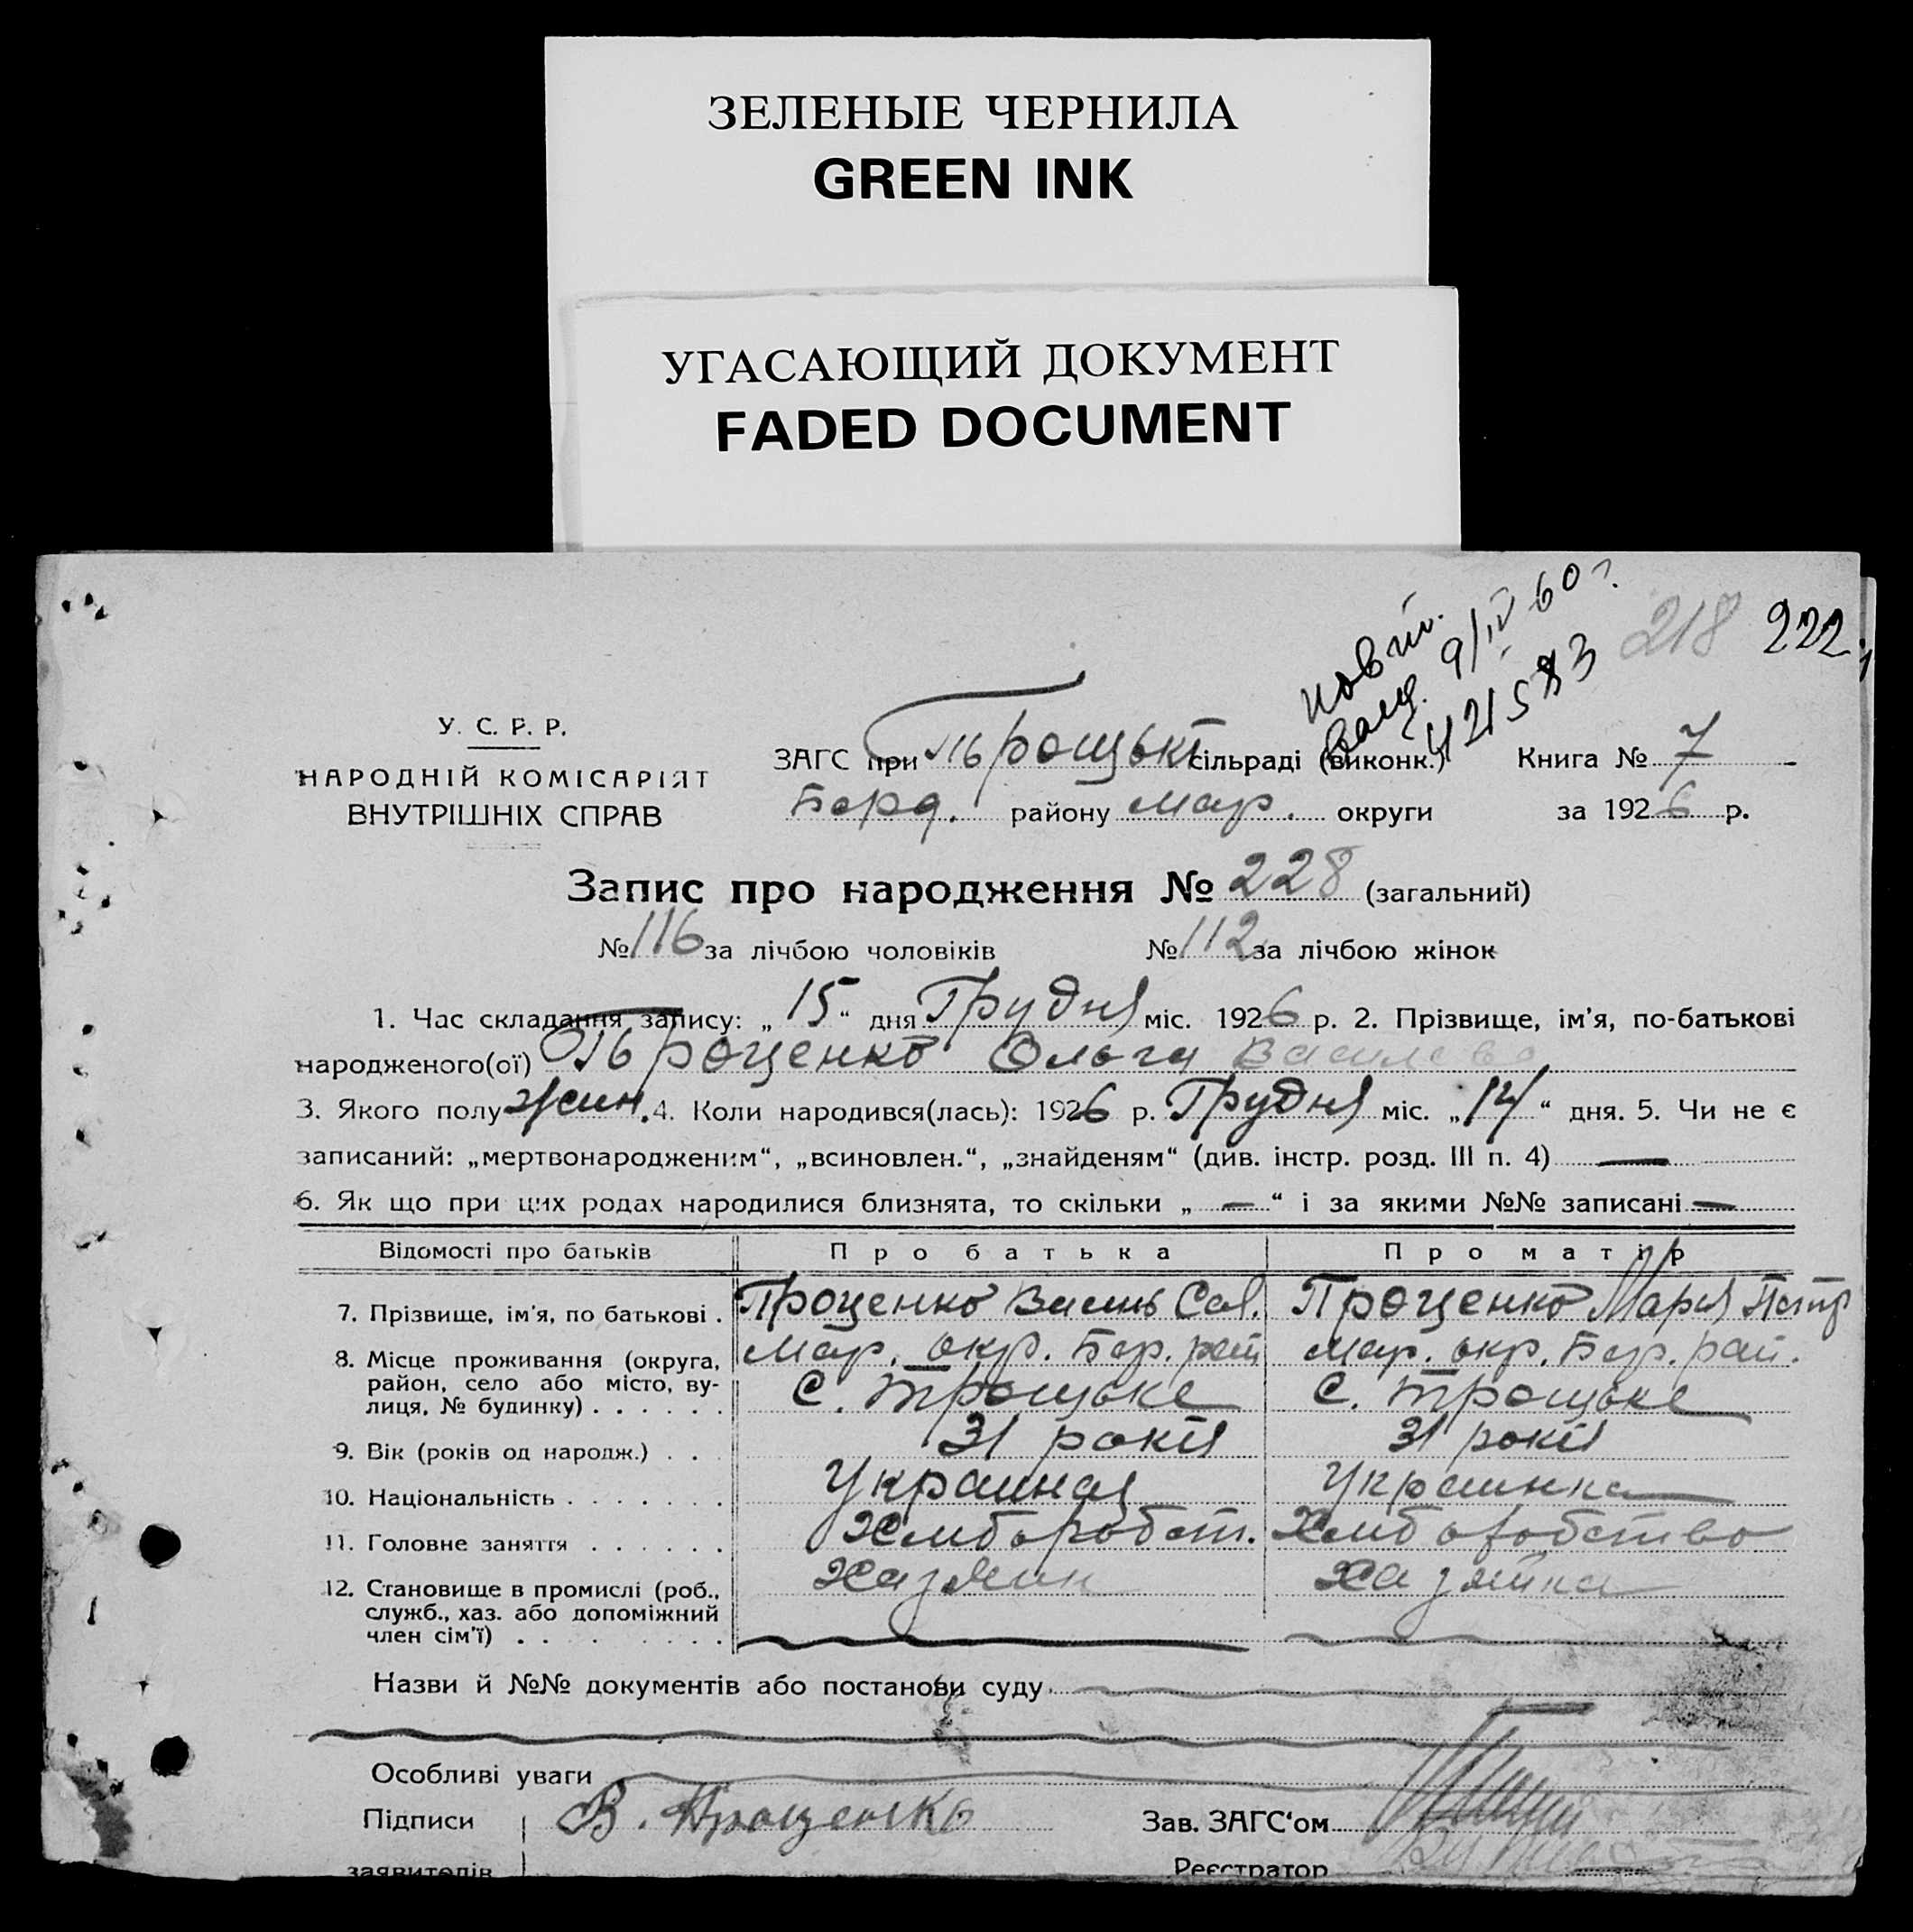 ЗЕЛЕНЫЕ ЧЕРНИЛА
GREEN INK
УГАСАЮЩИЙ ДОКУМЕНТ
FADED DOCUMENT
218 222
9/IV 60 г.
У. С. Р. Р.
НАРОДНІЙ КОМІСАРІЯТ
ВНУТРІШНІХ СПРАВ
ЗАГС при Троцькій сільраді (виконк.) Книга № 7
Берд. району Мар. округи за 1926 р.
Запис про народження № 228 (загальний)
№ 116 за лічбою чоловіків № 112 за лічбою жінок
1. Час складання запису: „15“ дня Грудня міс. 1926 р. 2. Прізвище, ім'я, по-батькові
народженого(ої) Проценко Ольга Василева
3. Якого полу жин. 4. Коли народився(лась): 1926 р. Грудня міс. „14“ дня. 5. Чи не є
записаний: „мертвонародженим“, „всиновлен.“, „знайденям“ (див. інстр. розд. III п. 4) —
6. Як що при цих родах народилися близнята, то скільки „—“ і за якими №№ записані —
Відомості про батьків Про батька Про матір
7. Прізвище, ім'я, по батькові . Проценко Василь Сав. Проценко Мария Петр
8. Місце проживання (округа, район, село або місто, вулиця, № будинку) . . . . . . Мар. окр. Бер. рай Мар. окр. Бер. рай.
с. Троцьке с. Троцьке
9. Вік (років од народж.) . . . 31 років 31 років
10. Національність . . . . . . . Украинец Украинка
11. Головне заняття . . . . . . Хлиборобст. Хлиборобство
12. Становище в промислі (роб., служб., хаз. або допоміжний член сім'ї) . . . . . . . . Хазяин Хазяйка
Назви й №№ документів або постанови суду
Особливі уваги
Підписи В. Проценко Зав. ЗАГС‘ом
заявителів Реєстратор